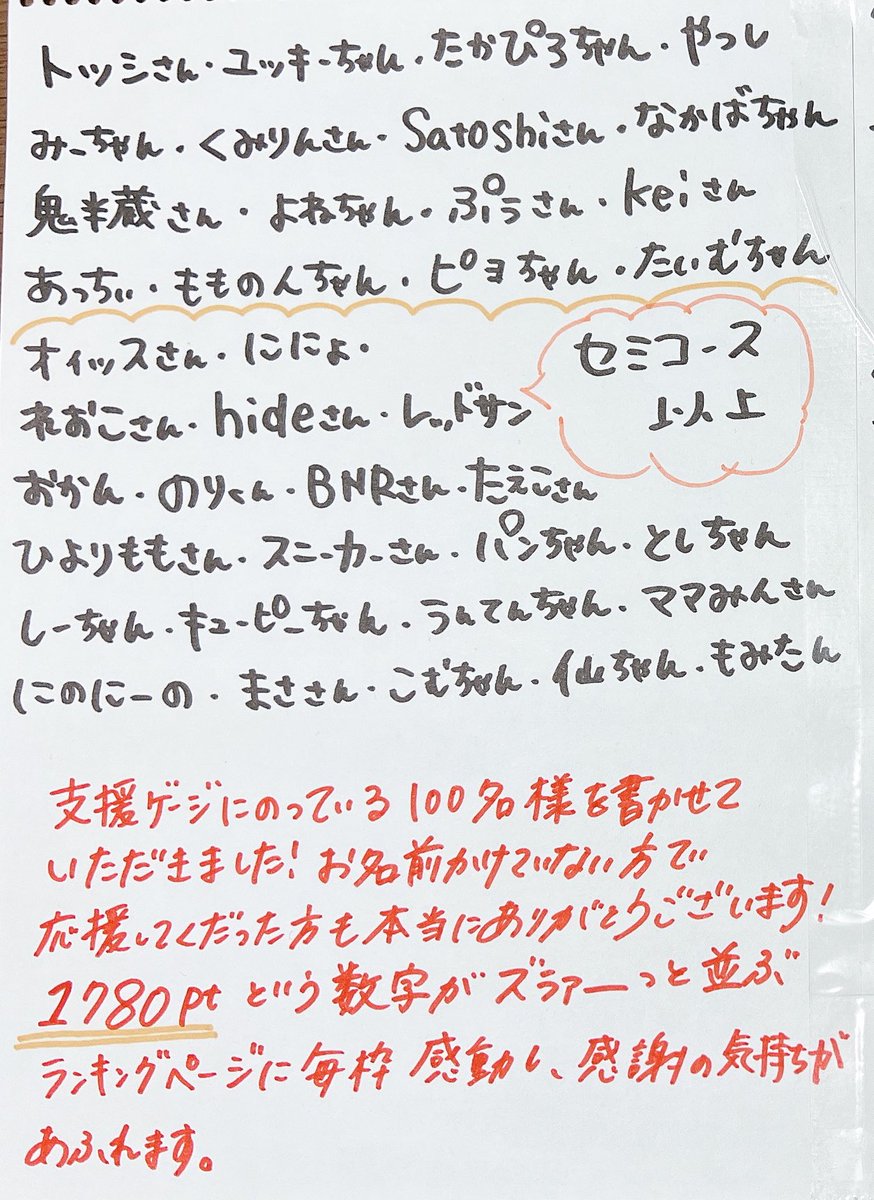 トッシさん・ユッキーちゃん・たかぴろちゃん・やっし
みーちゃん・くみりんさん・Satoshiさん・なかばちゃん
鬼半蔵さん・よねちゃん・ぷぅさん・keiさん
あっちぃ・もものんちゃん・ピヨちゃん・たいむちゃん
オィッスさん・にによ・
れおこさん・hideさん・レッドサン
セミコース
以上
おかん・のりくん・BNRさん・たえこさん
ひよりももさん・スニーカーさん・パンちゃん・としちゃん
しーちゃん・キューピーちゃん・うんてんちゃん・ママみんさん
にのにーの・まささん・こむちゃん・仙ちゃん・もみたん
支援ゲージにのっている100名様を書かせて
いただきました!お名前かけていない方で
応援してくだった方も本当にありがとうございます!
1780ptという数字がズラァーっと並ぶ
ランキングページに毎枠感動し、感謝の気持ちが
あふれます。